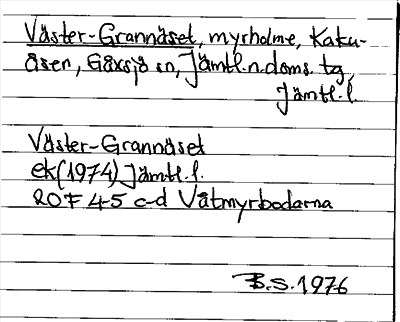 Väster-Grannäset, myrholme, Kaku-
åsen, Gåxsjö sn, Jämtl.n.doms. tg,
Jämtl.l.
Väster-Grannäset
ek(1974) Jämtl.l.
20F 45 c-d Våtmyrbodarna
B.S.1976